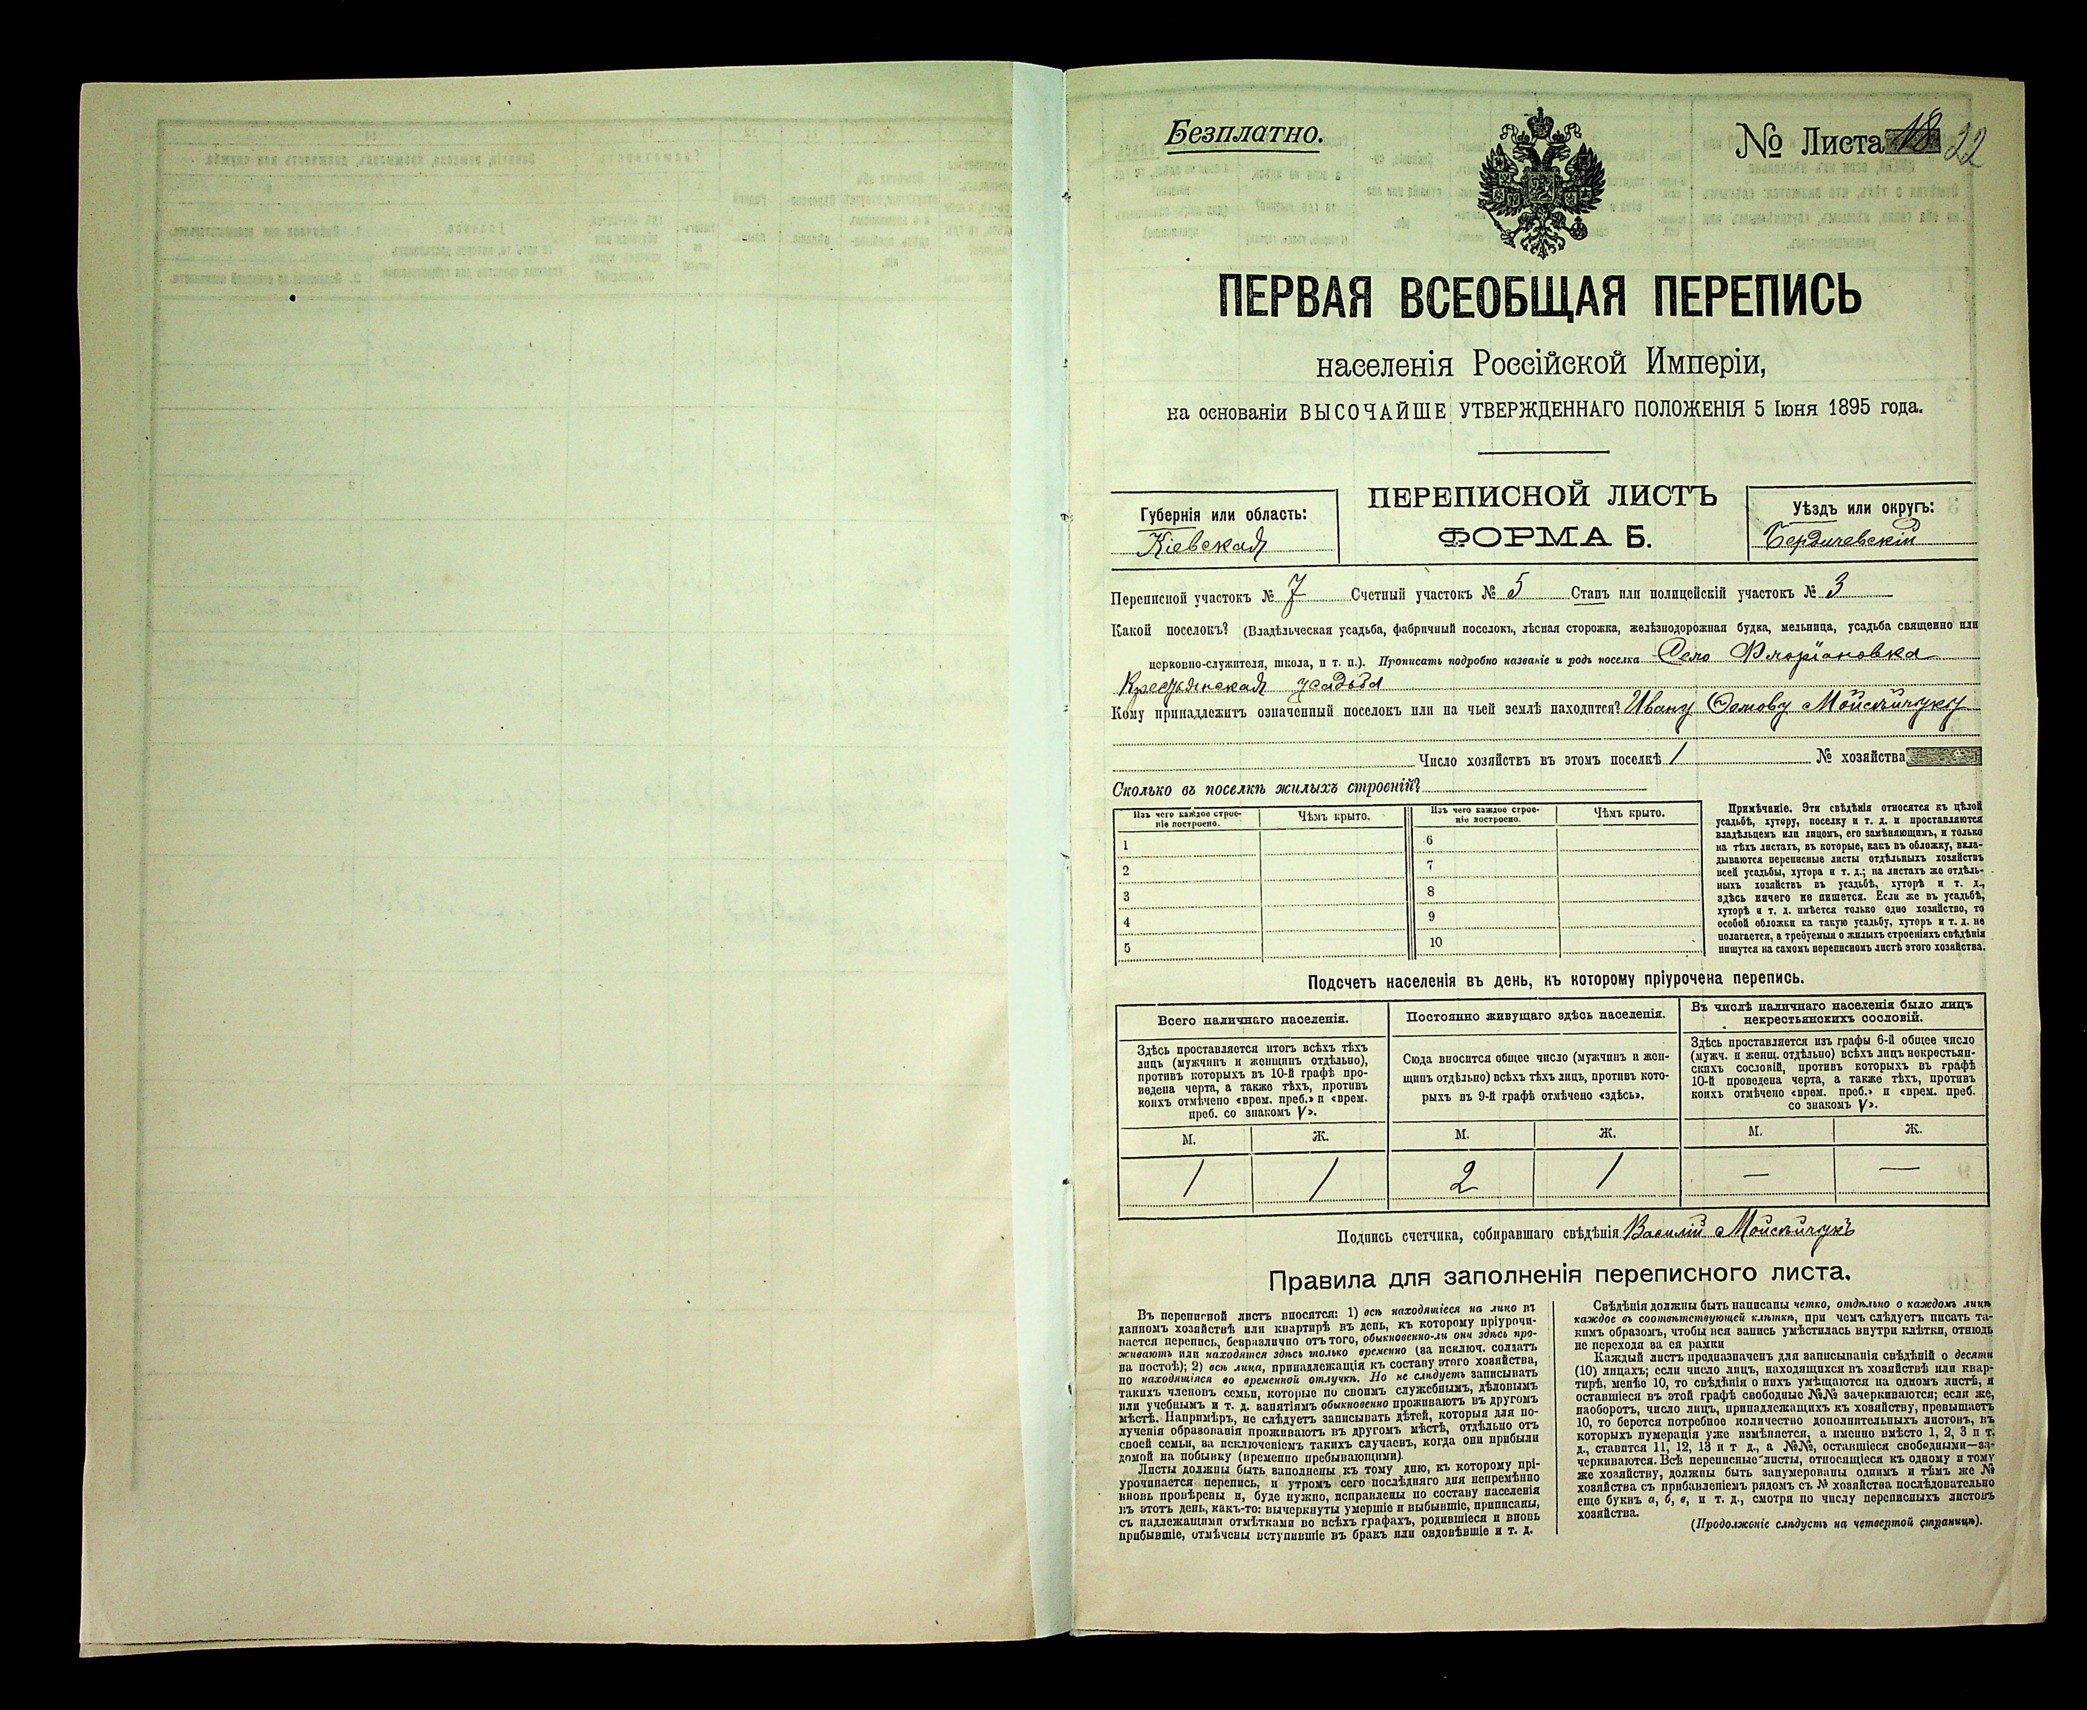 Безплатно.
№ Листа 18 22
ПЕРВАЯ ВСЕОБЩАЯ ПЕРЕПИСЬ
населенія Россійской Имперіи,
на основаніи ВЫСОЧАЙШЕ УТВЕРЖДЕННАГО ПОЛОЖЕНІЯ 5 Іюня 1895 года.
ПЕРЕПИСНОЙ ЛИСТЪ
ФОРМА Б.
Губернія или область:
Кіевская
Уѣздъ или округъ:
Бердичевскій
Переписной участокъ № 7 Счетный участокъ № 5 Станъ или полицейскій участокъ № 3
Какой поселокъ? (Владѣльческая усадьба, фабричный поселокъ, лѣсная сторожка, желѣзнодорожная будка, мельница, усадьба священно или
церковно-служителя, школа, и т. п.). Прописать подробно названіе и родъ поселка Село Флоріановка
Крестьянская усадьба
Кому принадлежитъ означенный поселокъ или на чьей землѣ находится? Ивану Мойсѣйчуку
Число хозяйствъ въ этомъ поселкѣ 1 № хозяйства
Сколько въ поселкѣ жилыхъ строеній?
Изъ чего каждое строе-
ніе построено.
Чѣмъ крыто.
Изъ чего каждое строе-
ніе построено.
Чѣмъ крыто.
1
2
3
4
5
6
7
8
9
10
Примѣчаніе. Эти свѣдѣнія относятся къ цѣлой
усадьбѣ, хутору, поселку и т. д. и проставляются
владѣльцемъ или лицомъ, его замѣняющимъ, и только
на тѣхъ листахъ, въ которые, какъ въ обложку, вкла-
дываются переписные листы отдѣльныхъ хозяйствъ
всей усадьбы, хутора и т. д.; на листахъ же отдѣль-
ныхъ хозяйствъ въ усадьбѣ, хуторѣ и т. д.,
здѣсь ничего не пишется. Если же въ усадьбѣ,
хуторѣ и т. д. имѣется только одно хозяйство, то
особой обложки на такую усадьбу, хуторъ и т. д. не
полагается, а требуемыя о жилыхъ строеніяхъ свѣдѣнія
пишутся на самомъ переписномъ листѣ этого хозяйства.
Подсчетъ населенія въ день, къ которому пріурочена перепись.
Всего наличнаго населенія.
Здѣсь проставляется итогъ всѣхъ тѣхъ
лицъ (мужчинъ и женщинъ отдѣльно),
противъ которыхъ въ 10-й графѣ про-
ведена черта, а также тѣхъ, противъ
коихъ отмѣчено «врем. преб.» и «врем.
преб. со знакомъ V».
Постоянно живущаго здѣсь населенія.
Сюда вносится общее число (мужчинъ и жен-
щинъ отдѣльно) всѣхъ тѣхъ лицъ, противъ кото-
рыхъ въ 9-й графѣ отмѣчено «здѣсь».
Въ числѣ наличнаго населенія было лицъ
некрестьянскихъ сословій.
Здѣсь проставляется изъ графы 6-й общее число
(мужч. и женщ. отдѣльно) всѣхъ лицъ некрестьян-
скихъ сословій, противъ которыхъ въ графѣ
10-й проведена черта, а также тѣхъ, противъ
коихъ отмѣчено «врем. преб.» и «врем. преб.
со знакомъ V».
М. Ж. М. Ж. М. Ж.
1 1 2 1 — —
Подпись счетчика, собиравшаго свѣдѣнія Василій Мойсѣйчукъ
Правила для заполненія переписного листа.
Въ переписной листъ вносятся: 1) всѣ находящіеся на лицо въ
данномъ хозяйствѣ или квартирѣ въ день, къ которому пріурочи-
вается перепись, безразлично отъ того, обыкновенно-ли они здѣсь про-
живаютъ или находятся здѣсь только временно (за исключ. солдатъ
на постоѣ); 2) всѣ лица, принадлежащія къ составу этого хозяйства,
но находящіяся во временной отлучкѣ. Но не слѣдуетъ записывать
такихъ членовъ семьи, которые по своимъ служебнымъ, дѣловымъ
или учебнымъ и т. д. занятіямъ обыкновенно проживаютъ въ другомъ
мѣстѣ. Напримѣръ, не слѣдуетъ записывать дѣтей, которыя для по-
лученія образованія проживаютъ въ другомъ мѣстѣ, отдѣльно отъ
своей семьи, за исключеніемъ такихъ случаевъ, когда они прибыли
домой на побывку (временно пребывающими).
Листы должны быть заполнены къ тому дню, къ которому прі-
урочивается перепись, и утромъ сего послѣдняго дня непремѣнно
вновь провѣрены и, буде нужно, исправлены по составу населенія
въ этотъ день, какъ-то: вычеркнуты умершіе и выбывшіе, приписаны,
съ надлежащими отмѣтками во всѣхъ графахъ, родившіеся и вновь
прибывшіе, отмѣчены вступившіе въ бракъ или овдовѣвшіе и т. д.
Свѣдѣнія должны быть написаны четко, отдѣльно о каждомъ лицѣ
каждое въ соотвѣтствующей клѣткѣ, при чемъ слѣдуетъ писать та-
кимъ образомъ, чтобы вся запись умѣстилась внутри клѣтки, отнюдь
не переходя за ея рамки
Каждый листъ предназначенъ для записыванія свѣдѣній о десяти
(10) лицахъ; если число лицъ, находящихся въ хозяйствѣ или квар-
тирѣ, менѣе 10, то свѣдѣнія о нихъ умѣщаются на одномъ листѣ, и
оставшіеся въ этой графѣ свободные №№ зачеркиваются; если же,
наоборотъ, число лицъ, принадлежащихъ къ хозяйству, превышаетъ
10, то берется потребное количество дополнительныхъ листовъ, въ
которыхъ нумерація уже измѣняется, а именно вмѣсто 1, 2, 3 и т.
д., ставится 11, 12, 13 и т д., а №№, оставшіеся свободными—за-
черкиваются. Всѣ переписные листы, относящіеся къ одному и тому
же хозяйству, должны быть занумерованы однимъ и тѣмъ же №
хозяйства съ прибавленіемъ рядомъ съ № хозяйства послѣдовательно
еще буквъ а, б, в, и т. д., смотря по числу переписныхъ листовъ
хозяйства.
(Продолженіе слѣдуетъ на четвертой страницѣ).